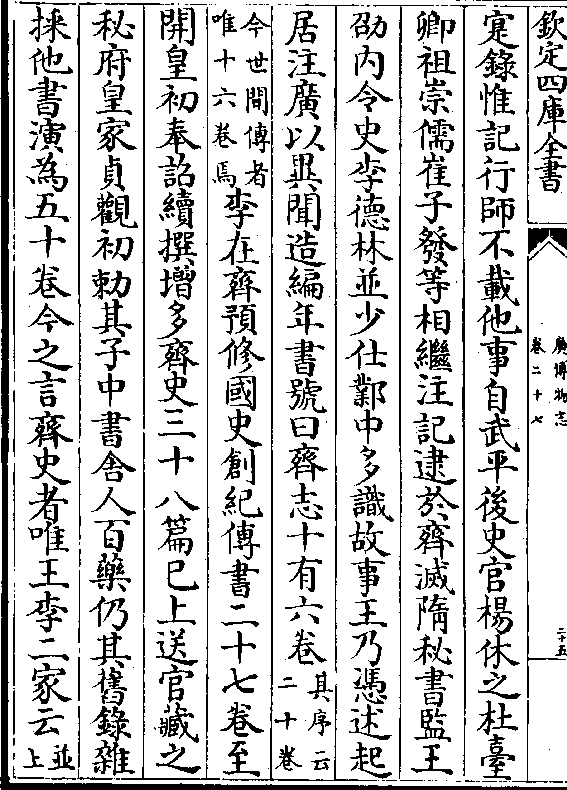 欽定四庫全書
廣博物志
卷二十七
二十五
寔錄惟記行師不載他事自武平後史官楊休之杜臺
卿祖崇儒崔子發等相繼注記逮於齊滅隋秘書監王
劭内令史李德林並少仕鄴中多識故事王乃憑述起
居注廣以異聞造編年書號曰齊志十有六卷其序云二十卷
今世間傳者唯十六卷焉李在齊預修國史創紀傳書二十七卷至
開皇初奉詔續撰增多齊史三十八篇已上送官藏之
秘府皇家貞觀初勅其子中書舍人百藥仍其舊錄雜
採他書演為五十卷今之言齊史者唯王李二家云並上